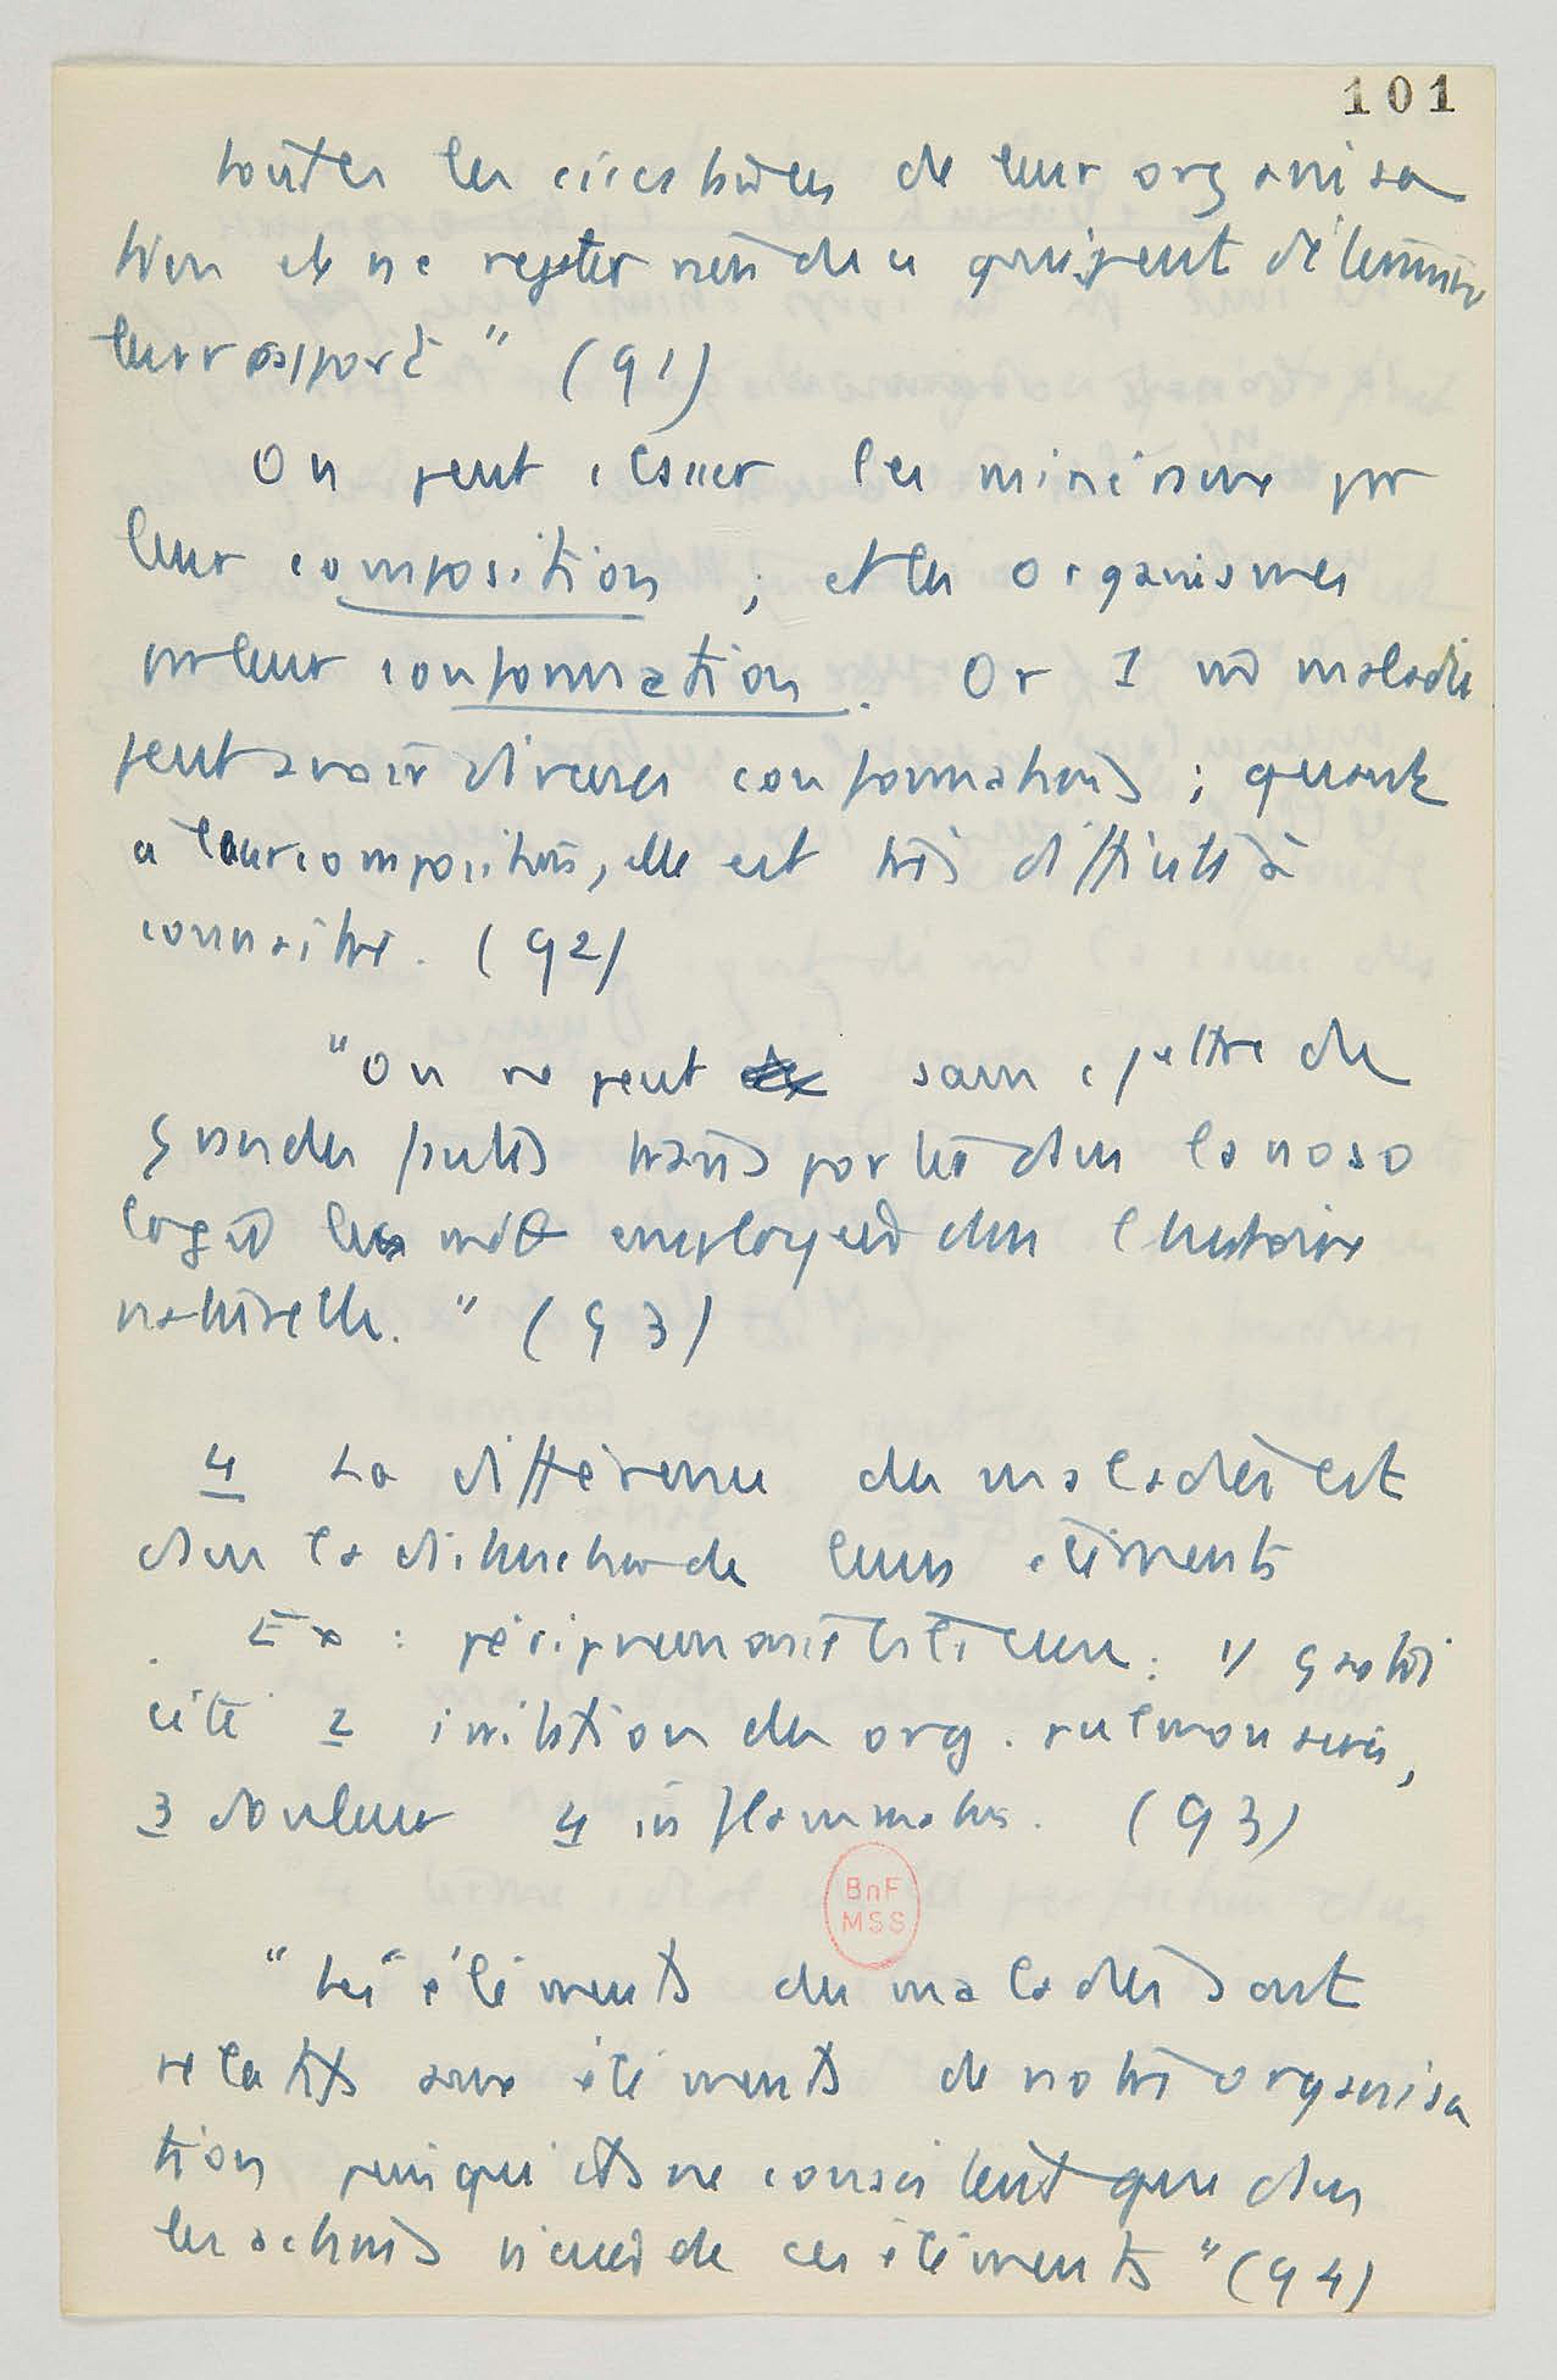 101
toutes les de leur organisa
tion et ne rejeter rien de ce qui peut déterminer
leur rapport" (91)
On peut classer les minéraux par
leur composition ; et les organismes
par leur conformation. Or 1 maladie
peut avoir diverses conformations ; quant
a leur composition, elle est très difficile à
connaître. (92)
"On ne peut sans commettre de
grandes fautes transporter dans la noso
logie les employées dans l'histoire
naturelle." (93)
4 La différence des maladies est
dans la distinction de leurs éléments
Ex : péripneumonie bilieuse : 1/ gastri
cité 2 irritation des org. pulmonaires,
3 douleur 4 inflammation. (93)
"Les éléments des maladies sont
relatifs aux éléments de notre organisa
tion puisqu'ils ne consistent que dans
les actions viciées de ces éléments" (94)
BnF
MSS